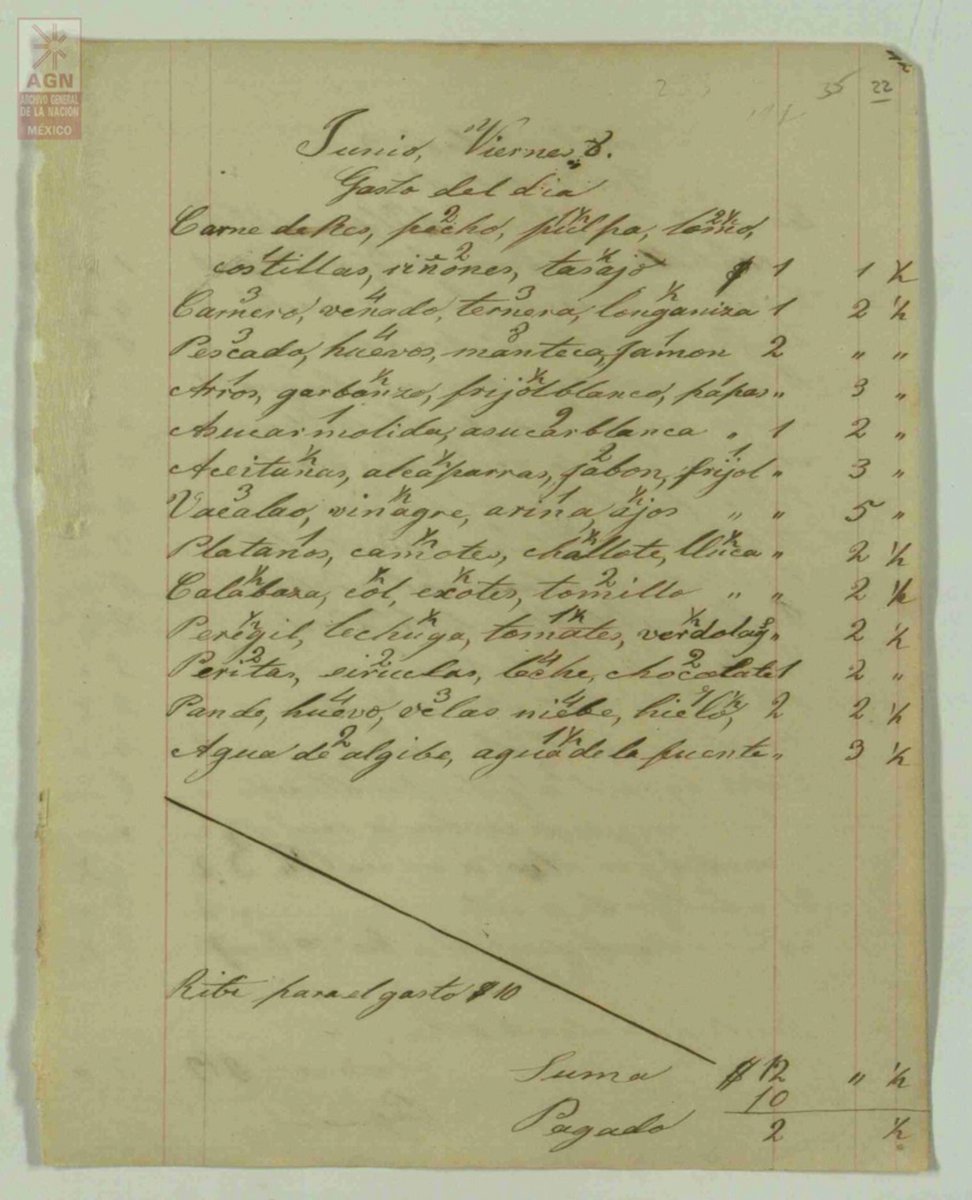 AGN
ARCHIVO GENERAL
DE LA NACIÓN
MÉXICO
35 22
Junio, Viernes 8.
Gasto del dia
2 1½ 2½
Carne de Res, pecho, pulpa, lomo,
1 2 ½
costillas, riñones, tasajo $ 1 1 ½
3 4 3 ½
Carnero, venado, ternera, longaniza 1 2 ½
3 4 8 1
Pescado, huevos, manteca, jamon 2 " "
1 ½ ½ 1
Arros, garbanzo, frijol blanco, papas " 3 "
1 9
Asucar molida, asucar blanca " 1 2 "
½ ½ 2 1
Aceitunas, alcaparras, jabon, frijol " 3 "
3 ½ 1 ½
Vacalao, vinagre, arina, ajos " " 5 "
1 ½ 1½ ½
Platanos, camotes, challote, lluca " 2 ½
½ ½ ½ 2
Calabaza, col, exotes, tomillo " " 2 ½
½ ½ 1½ ½
Peregil, lechuga, tomates, verdolags " 2 ½
2 2 4 2
Peritas, siruelas, leche, chocolate 1 2 "
4 3 4 1½
Pan de, huevo, velas niebe, hielo, 2 2 ½
2 1½
Agua de algibe, agua de la fuente " 3 ½
Ribi para el gasto $10
Suma $12 " ½
10
Pagado 2 ½